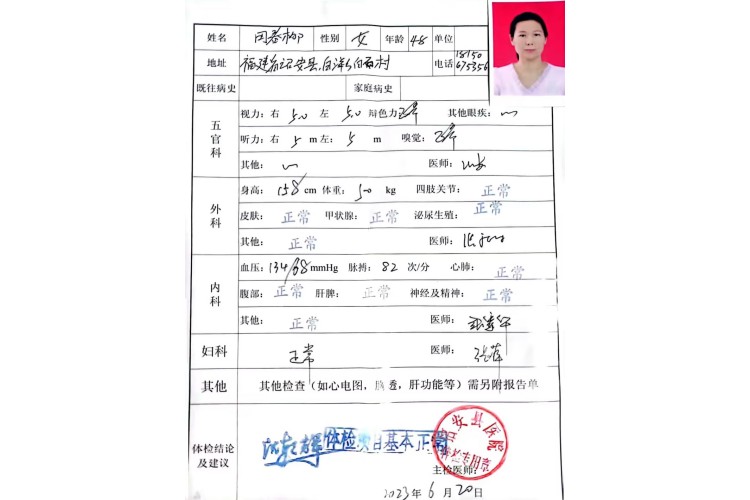 姓名 田春柳 性别 女 年龄 48 单位
地址 福建省诏安县白洋乡白石村 电话 18150 675356
既往病史 家庭病史
五官科 视力：右 5.0 左 5.0 辩色力 正常 其他眼疾：
听力：右 5 m 左：5 m 嗅觉：正常
其他： 医师：
外科 身高：158 cm 体重：50 kg 四肢关节：正常
皮肤：正常 甲状腺：正常 泌尿生殖：正常
其他：正常 医师：
内科 血压：134/68 mmHg 脉搏：82 次/分 心肺：正常
腹部：正常 肝脾：正常 神经及精神：正常
其他：正常 医师：
妇科 正常 医师：
其他 其他检查（如心电图，胸透，肝功能等）需另附报告单
体检结论及建议 体检项目基本正常
诏安县医院
体检专用章
主检医师：
2023年 6 月 20 日